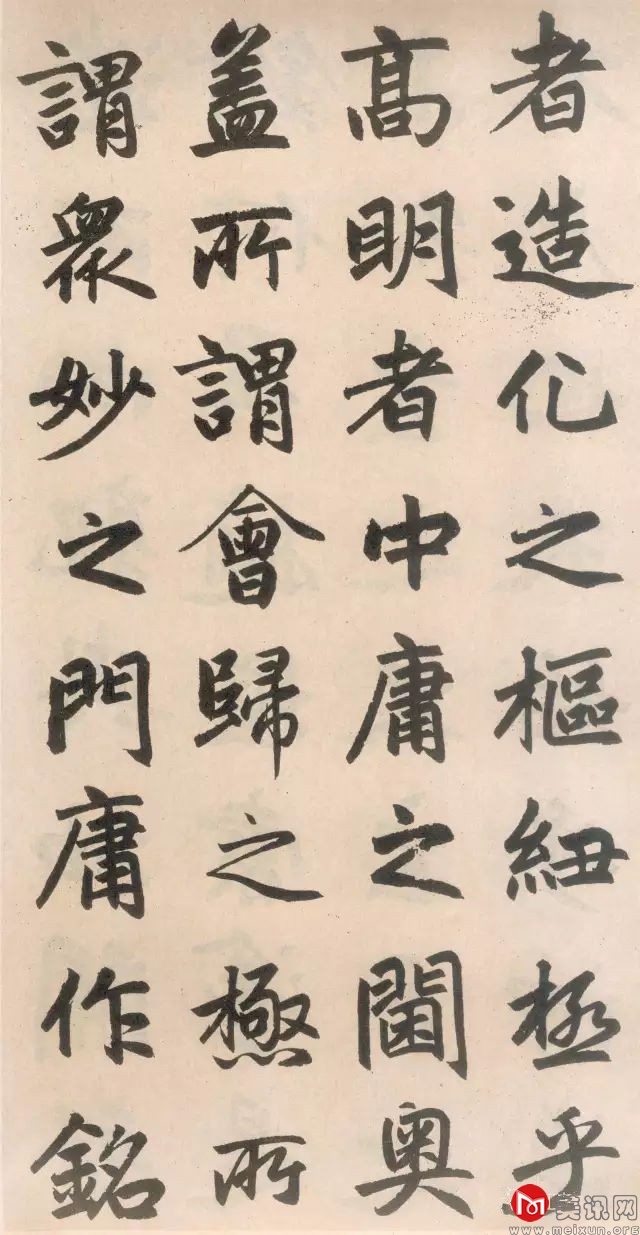 者造化之樞紐極乎
高明者中庸之閫奥
盖所謂會歸之極所
謂衆妙之門庸作銘
美讯网
www.meixun.org